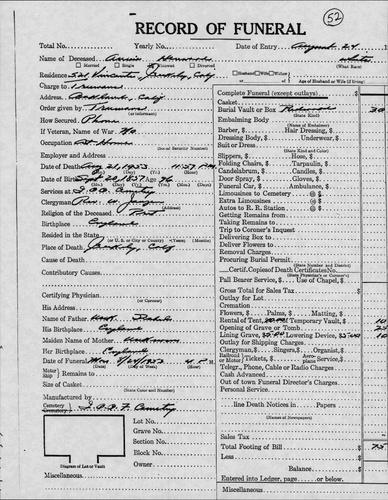 52
RECORD OF FUNERAL
Total No. Yearly No. Date of Entry August 24
Name of Deceased Annie white
Married Single Widowed Divorced (What Race)
Residence Calif Husband Wife Widow of Age of Husband or Wife (if living)
Charge to Truman
Address Calif
Order Given by Truman
(or Informant)
How Secured Phone
If Veteran, Name of War No
Occupation At Home
(Social Security Number)
Employer and Address
Date of Death Aug 21, 1953 11:57 P.M.
Date of Birth Sept 1877 Age 76
Services at I.O.O.F. Cemetery
Clergyman Rev. W.
Religion of the Deceased Prot
Birthplace England
Resided in the State
(or U. S. or City or County) (Years) (Months)
Place of Death Calif
Cause of Death
Contributory Causes
Certifying Physician
(or Coroner)
His Address
Name of Father
His Birthplace England
Maiden Name of Mother Unknown
Her Birthplace England
Date of Funeral Mon. 8/24/1953 4 P.M.
(Date) (Day of Week) (Hour)
Motor Ship Remains to
Size of Casket
(State Color and Number)
Manufactured by
Cemetery Crematory I.O.O.F. Cemetery
Lot No.
Grave No.
Section No.
Block No.
Owner
Diagram of Lot or Vault
Miscellaneous
Complete Funeral (except outlays) $
Casket
Burial Vault or Box
(State Kind)
Embalming Body
(Name of Embalmer)
Barber, $ Hair Dressing, $
Dressing Body, $ Underwear, $
Suit or Dress
(State Kind)
Slippers, $ Hose, $
Folding Chairs, $ Tarpaulin, $
Candelabrum, $ Candles, $
Door Spray, $ Gloves, $
Funeral Car, $ Ambulance, $
Limousines to Cemetery @ $
Extra Limousines @ $
Autos to R. R. Station @ $
Getting Remains from
Taking Remains to
Trip to Coroner's Inquest
Delivering Box to
Deliver Flowers to
Removal Charges
Procuring Burial Permit
(State Number and District)
Certif. Copies of Death Certificates No.
(State Physician's or Coroner's)
Pall Bearer Service, $ Use of Chapel, $
Gross Total for Sales Tax
Outlay for Lot
Cremation
Flowers, $ Palms, $ Matting, $
Rental of Tent, Temporary Vault, $ 10
Opening of Grave or Tomb 25
Lining Grave, Lowering Device, 10
Outlay for Shipping Charges
Clergyman, $ Singers, $ Organist, $
Railroad or Motor Tickets, $ Aero Service, $
Telegr., Phone, Cable or Radio Charges
Cash Advanced
Out of town Funeral Director's Charges
Personal Service
line Death Notices in Papers
(Names of Newspapers)
Sales Tax
Total Footing of Bill $ 75
Less
Balance $
Entered into Ledger, page or below.
Miscellaneous